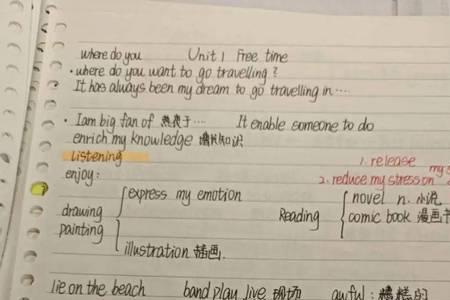 where do you Unit 1 Free time
· where do you want to go travelling?
It has always been my dream to go travelling in ····
· I am big fan of 热衷于 ··· It enable someone to do
enrich my knowledge 增长知识
Listening 1. release my
enjoy: 2. reduce my stress on
express my emotion novel n. 小说
drawing Reading comic book 漫画书
painting
illustration 插画.
lie on the beach band play live 现场 awful: 糟糕的